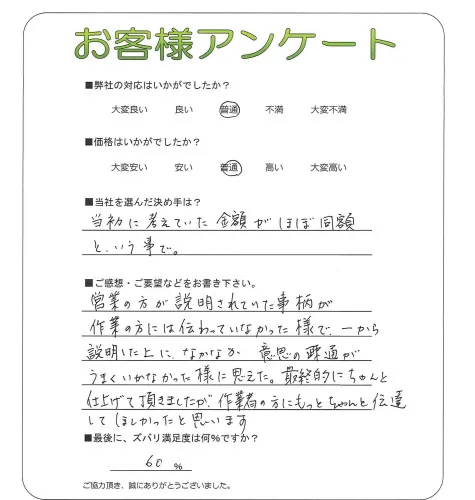 お客様アンケート
■弊社の対応はいかがでしたか?
大変良い 良い 普通 不満 大変不満
■価格はいかがでしたか?
大変安い 安い 普通 高い 大変高い
■当社を選んだ決め手は?
当初に考えていた金額がほぼ同額
という事で。
■ご感想・ご要望などをお書き下さい。
営業の方が説明されていた事柄が
作業の方には伝わっていなかった様で、一から
説明した上に、なかなか 意思の疎通が
うまくいかなかった様に思えた。最終的にちゃんと
仕上げて頂きましたが、作業者の方にもっとちゃんと伝達
してほしかったと思います
■最後に、ズバリ満足度は何%ですか?
60 %
ご協力頂き、誠にありがとうございました。